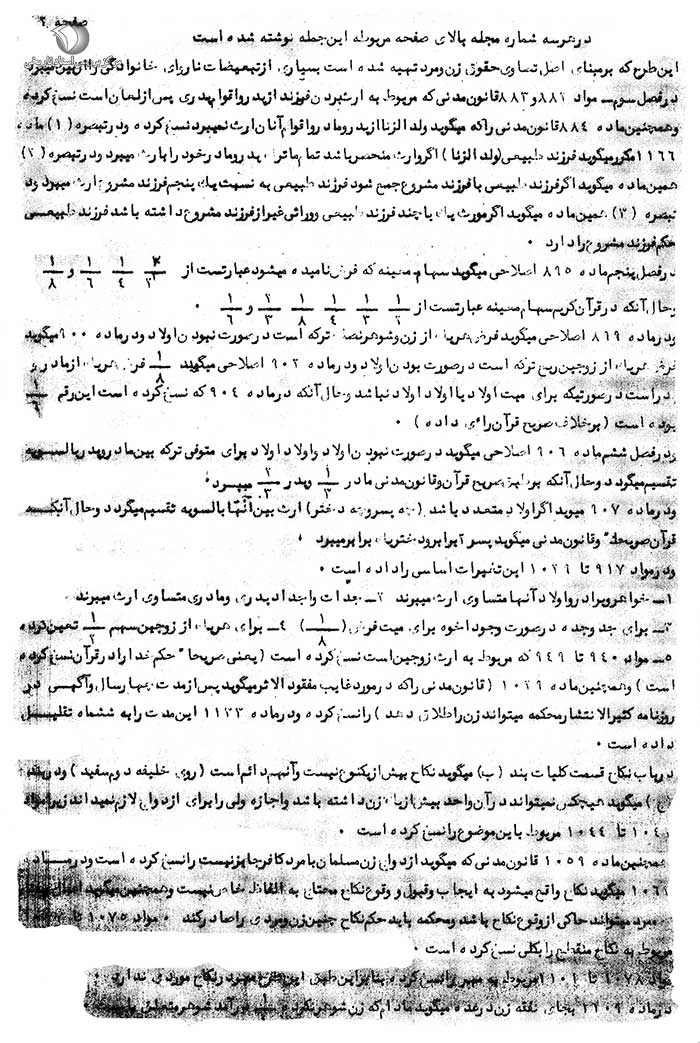 صفحه ۲
در هر سه شماره مجله بالای صفحه مربوطه این جمله نوشته شده است
این طرح که بر مبنای اصل تساوی حقوق زن و مرد تهیه شده است بسیاری از تبعیضات ناروای خانوادگی را از بین میبرد
در فصل سوم ـ مواد ۸۸۲ و ۸۸۳ قانون مدنی که مربوط به ارث بردن فرزند از پدر و اقوام پدری پس از لعان است نسخ کرده
و همچنین ماده ۸۸۴ قانون مدنی را که میگوید ولد الزنا از پدر و مادر و اقوام آنان ارث نمیبرد نسخ کرده و در تبصره (۱) ماده
۱۱۶۶ مکرر میگوید فرزند طبیعی (ولد الزنا) اگر وارث منحصر باشد تمام ماترک پدر و مادر خود را بارث میبرد و در تبصره (۲)
همین ماده میگوید اگر فرزند طبیعی با فرزند مشروع جمع شود فرزند طبیعی به نسبت یک پنجم فرزند مشروع ارث میبرد و در
تبصره (۳) همین ماده میگوید اگر مورث یک یا چند فرزند طبیعی و وراثی غیر از فرزند مشروع داشته باشد فرزند طبیعی
حکم فرزند مشروع را دارد ۰
در فصل پنجم ماده ۸۹۵ اصلاحی میگوید سهام معینه که فرض نامیده میشود عبارتست از ۲/۳ ۱/۴ ۱/۶ و ۱/۸
و حال آنکه در قرآن کریم سهام معینه عبارتست از ۱/۲ ۱/۳ ۱/۴ ۱/۸ ۲/۳ و ۱/۶ ۰
و در ماده ۸۹۹ اصلاحی میگوید فرض هر یک از زن و شوهر نصف ترکه است در صورت نبودن اولاد و در ماده ۹۰۰ میگوید
فرض هر یک از زوجین ربع ترکه است در صورت بودن اولاد و در ماده ۹۰۲ اصلاحی میگوید ۱/۸ فرض هر یک از مادر و
پدر است در صورتیکه برای میت اولاد یا اولاد اولاد نباشد و حال آنکه در ماده ۹۰۴ که نسخ کرده است این رقم ۱/۶
بوده است (بر خلاف صریح قرآن رأی داده) ۰
و در فصل ششم ماده ۹۰۶ اصلاحی میگوید در صورت نبودن اولاد و اولاد اولاد برای متوفی ترکه بین مادر و پدر بالسویه
تقسیم میگردد و حال آنکه بر طبق صریح قرآن و قانون مدنی مادر ۱/۳ و پدر ۲/۳ میبرد ۰
و در ماده ۹۰۷ میگوید اگر اولاد متعدد باشد (چه پسر و چه دختر) ارث بین آنها بالسویه تقسیم میگردد و حال آنکه
قرآن صریحاً و قانون مدنی میگوید پسر ۲ برابر و دختر یک برابر میبرد ۰
و در مواد ۹۱۷ تا ۱۰۲۹ این تغییرات اساسی را داده است ۰
۱ـ خواهر و برادر و اولاد آنها متساوی ارث میبرند ۲ـ جدات و اجداد پدری و مادری متساوی ارث میبرند ۰
۳ـ برای جد و جده در صورت وجود اخوه برای میت فرض (۱/۸) ۴ـ برای هر یک از زوجین سهم ۱/۲ تعیین کرده
۵ـ مواد ۹۴۰ تا ۹۴۹ که مربوط به ارث زوجین است نسخ کرده است (یعنی صریحاً حکم خدا را در قرآن نسخ کرده
است) و همچنین ماده ۱۰۲۹ (قانون مدنی را که در مورد غایب مفقود الاثر میگوید پس از مدت چهار سال و آگهی در
روزنامه کثیرالانتشار محکمه میتواند زن را طلاق دهد) را نسخ کرده و در ماده ۱۱۳۳ این مدت را به ششماه تقلیل
داده است ۰
در باب نکاح قسمت کلیات بند (ب) میگوید نکاح بیش از یکنوع نیست و آنهم دائم است (روی خلیفه دوم سفید) و در بند
میگوید هیچکس نمیتواند در آن واحد بیش از یک زن داشته باشد و اجازه ولی را برای ازدواج لازم نمیداند زیرا مواد
تا ۱۰۴۴ مربوط باین موضوع را نسخ کرده است ۰
همچنین ماده ۱۰۵۹ قانون مدنی که میگوید ازدواج زن مسلمان با مرد کافر جایز نیست را نسخ کرده است و در ماده
میگوید نکاح واقع میشود به ایجاب و قبول و وقوع نکاح محتاج به الفاظ خاص نیست و همچنین میگوید
مرد میتواند حاکی از وقوع نکاح باشد و محکمه باید حکم نکاح چنین زن و مردی را صادر کند ۰ مواد ۱۰۷۵ تا
مربوط به نکاح منقطع را بکلی نسخ کرده است ۰
مواد ۱۰۷۸ تا ۱۱۰۱ مربوط به مهر را نسخ کرده بنابراین طبق این طرح مهر در نکاح موردی ندارد
در ماده ۱۱۰۹ بجای نفقه زن در عده میگوید مادام که زن شوهر نکرده